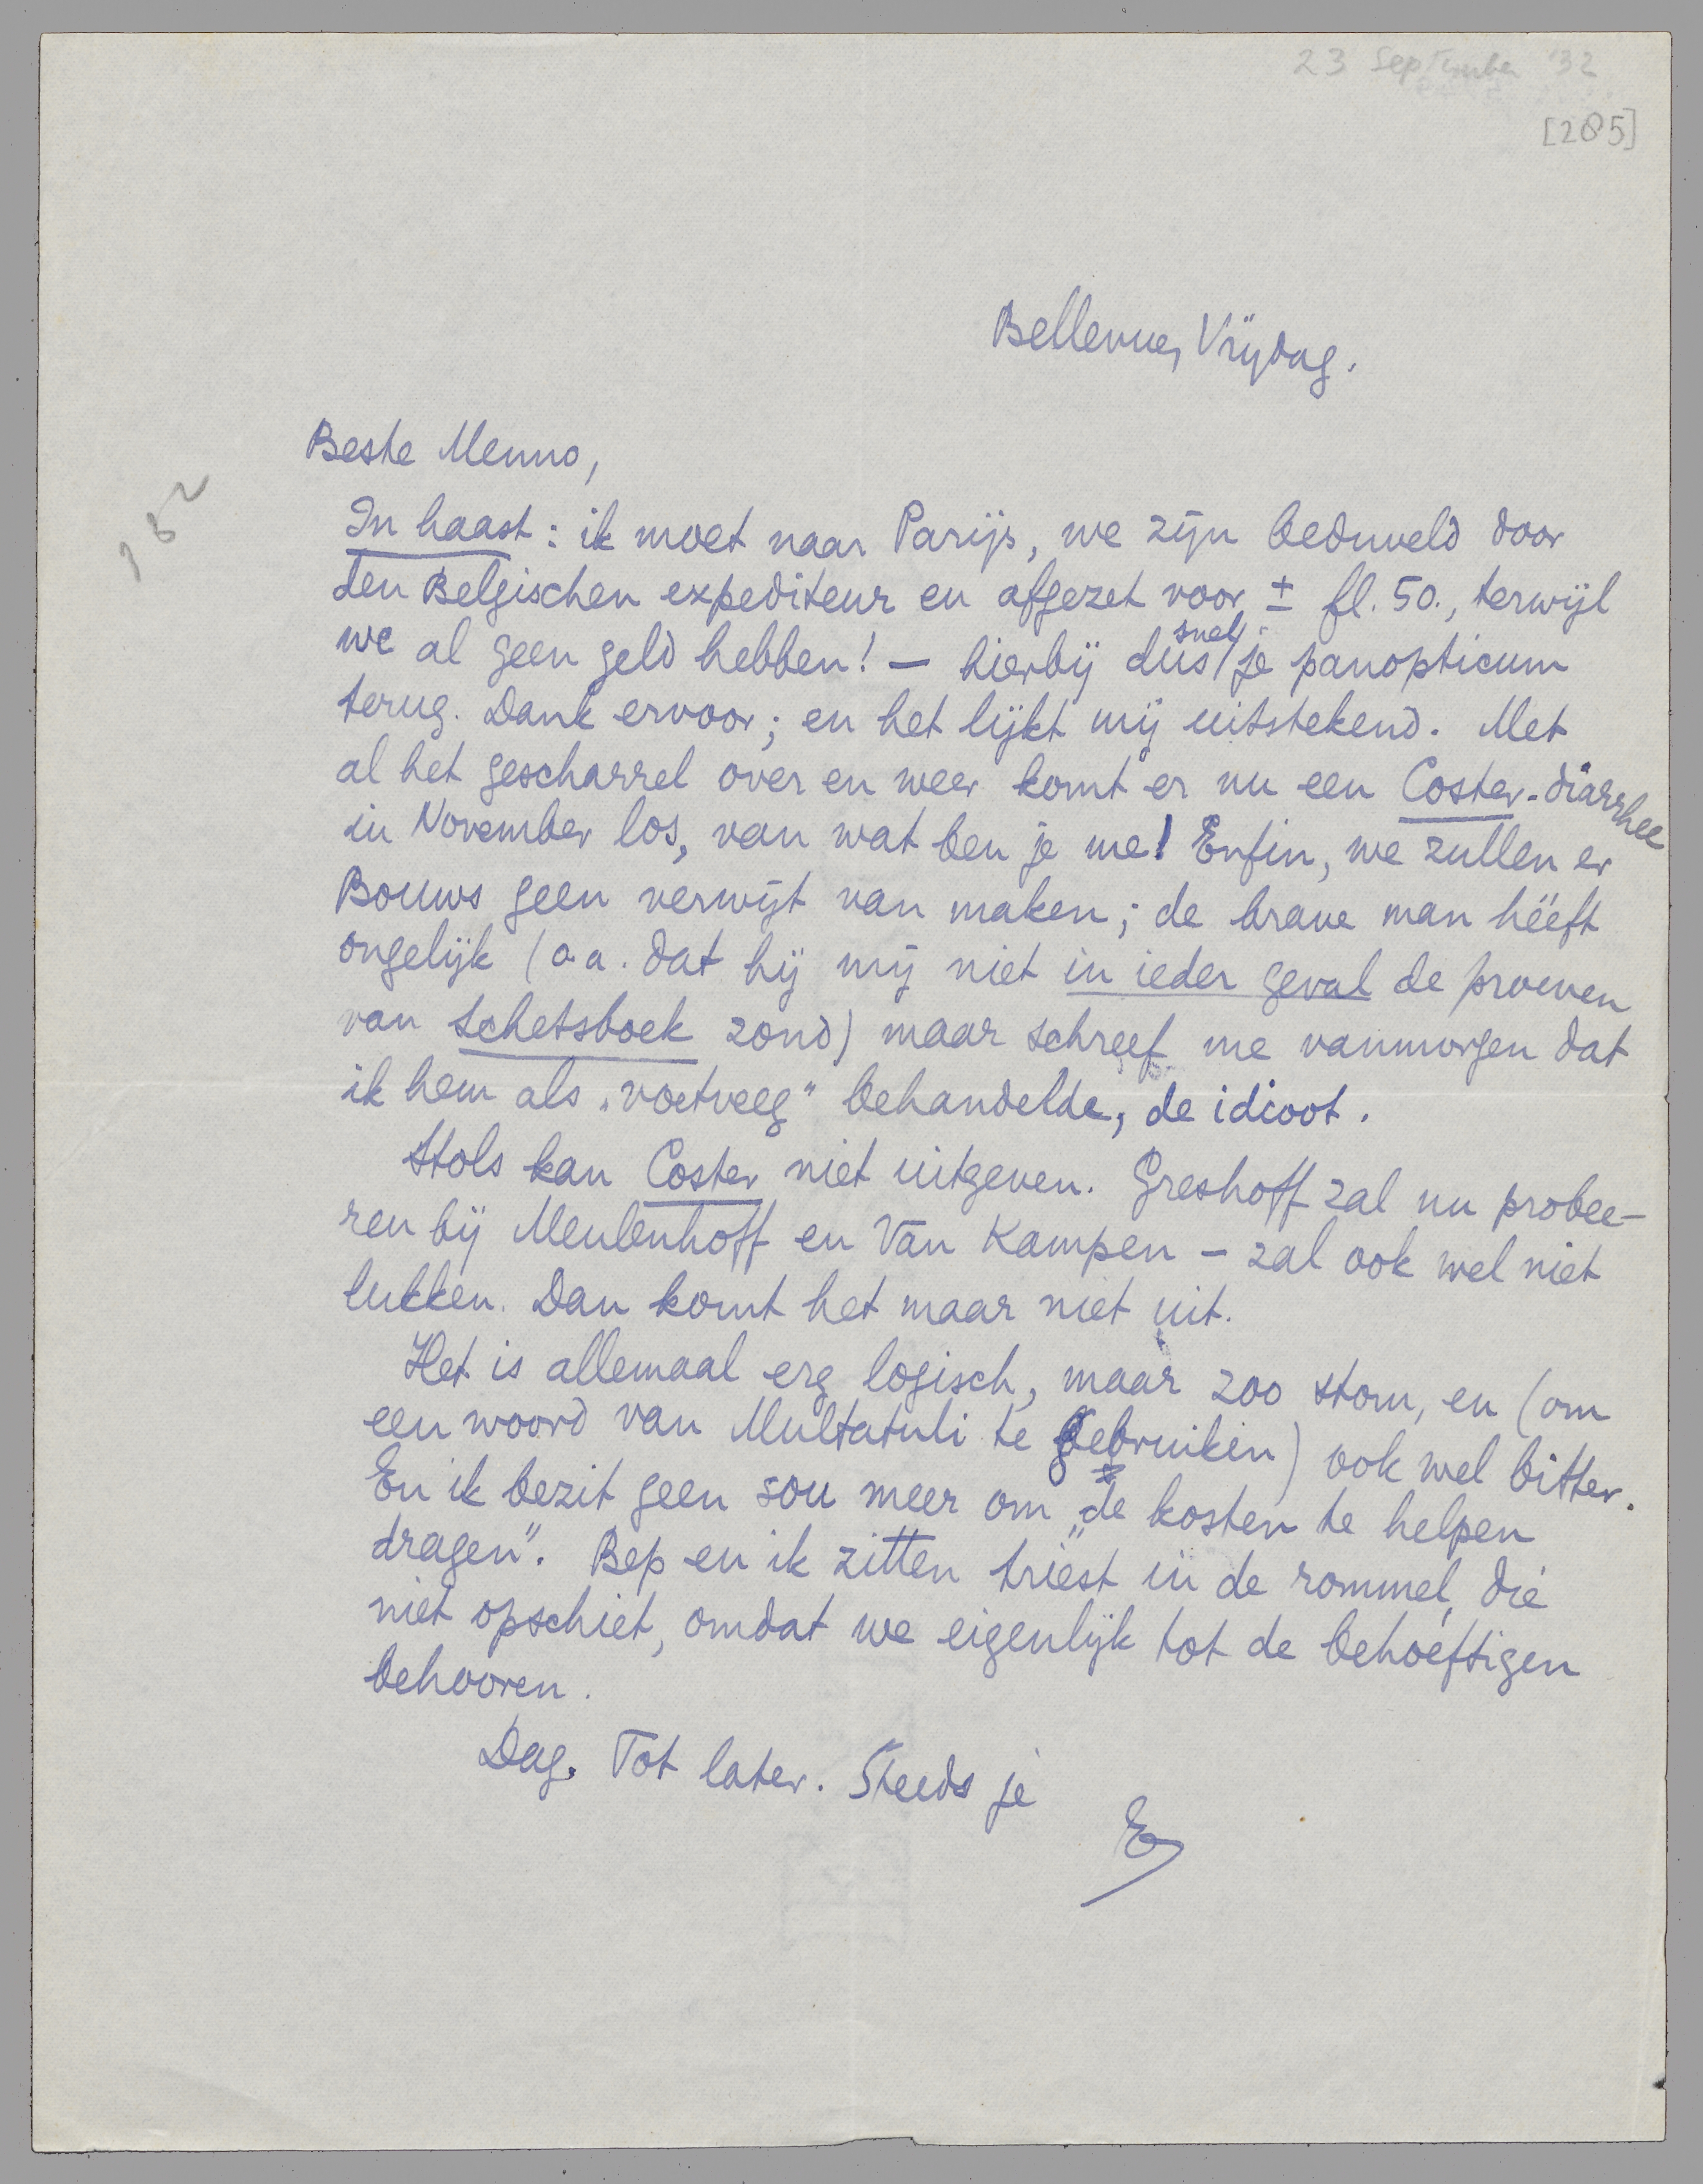 23 September '32
[285]
Bellevue, Vrijdag.
Beste Menno,
162
In haast: ik moet naar Parijs, we zijn beduveld door
den Belgischen expediteur en afgezet voor ± fl. 50., terwijl
we al geen geld hebben! — hierbij dus snel je panopticum
terug. Dank ervoor; en het lijkt mij uitstekend. Met
al het gescharrel over en weer komt er nu een Coster-diarrhee
in November los, van wat ben je me! Enfin, we zullen er
Bouws geen verwijt van maken; de brave man hééft
ongelijk (o.a. dat hij mij niet in ieder geval de proeven
van Schetsboek zond) maar schreef me vanmorgen dat
ik hem als „voetveeg" behandelde, de idioot.
Stols kan Coster niet uitgeven. Greshoff zal nu probee-
ren bij Meulenhoff en Van Kampen – zal ook wel niet
lukken. Dan komt het maar niet uit.
Het is allemaal erg logisch, maar zoo stom, en (om
een woord van Multatuli te gebruiken) ook wel bitter.
En ik bezit geen sou meer om „de kosten te helpen
dragen". Bep en ik zitten triest in de rommel, die
niet opschiet, omdat we eigenlijk tot de behoeftigen
behooren.
Dag. Tot later. Steeds je
E